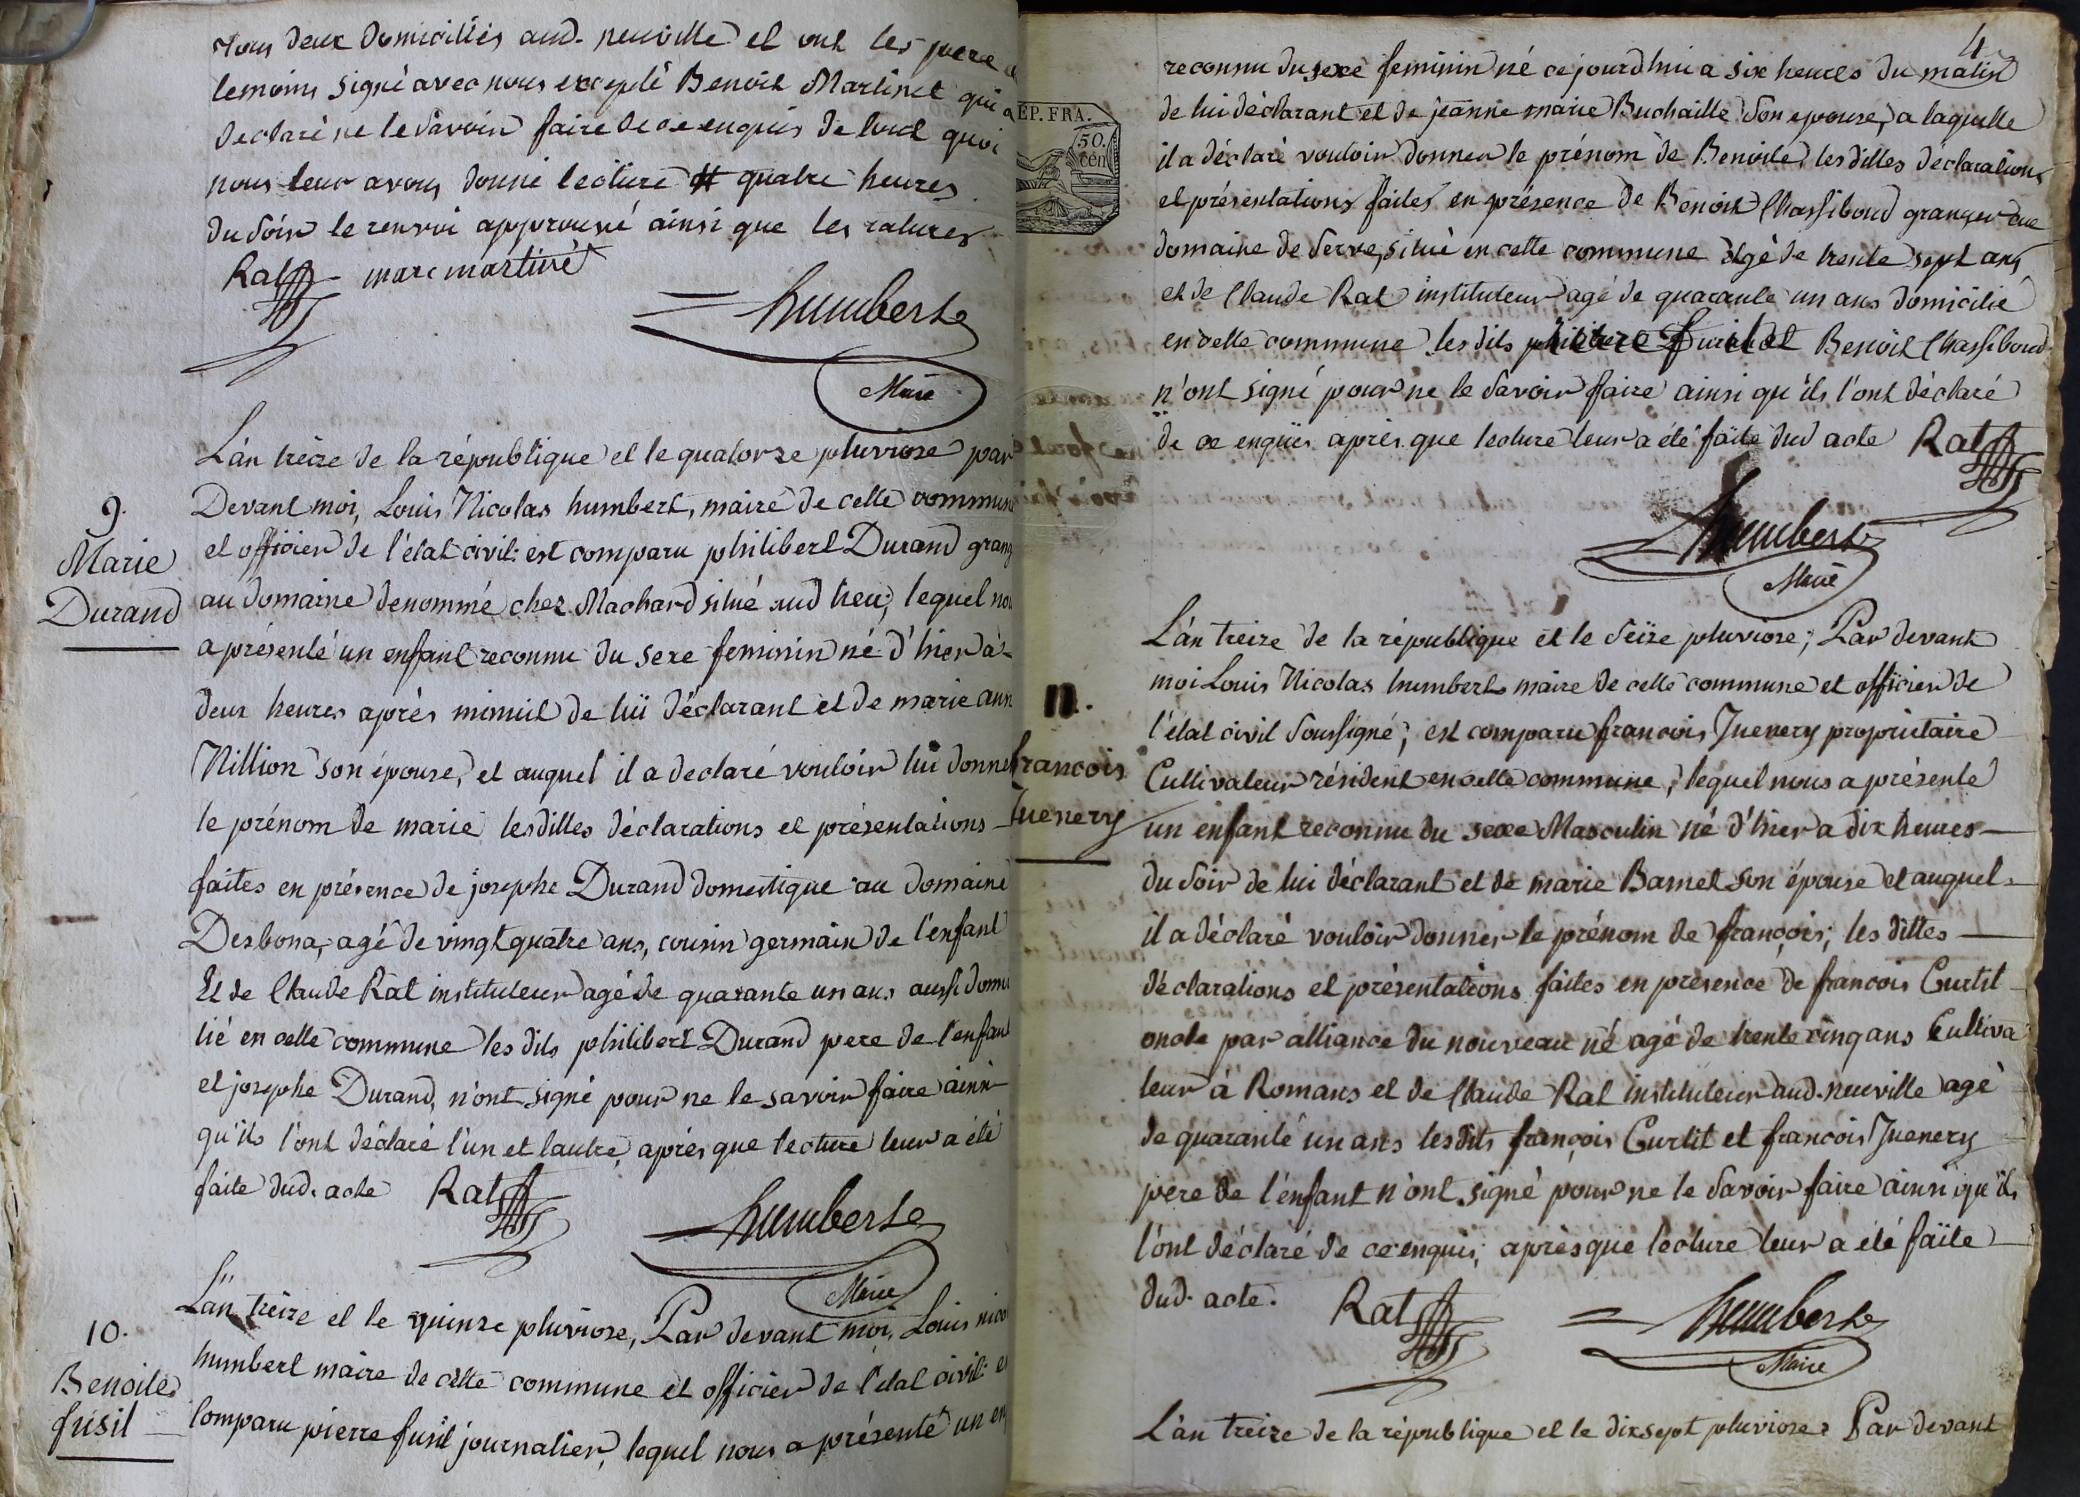 tous deux domiciliés aud. neuville et ont les père et
temoins signé avec nous excepté Benoit Martinet qui a
declaré ne le savoir faire de ce enquis de tout quoi
nous leur avons donné lecture # quatre heures
du soir le renvoi approuvé ainsi que les ratures
Rat marc martiné
humbert
Maire
L'an treize de la république et le quatorze pluviose par
Devant moi, Louis Nicolas humbert, maire de cette commune
9.
Marie
Durand
et officier de l'état civil: est comparu philibert Durand grang
au domaine denommé chez Machard situé aud lieu; lequel nou
a présenté un enfant reconnu du sexe feminin né d'hier à
deux heures après minuit de lui déclarant et de marie ann
Nillion son épouse, et auquel il a declaré vouloir lui donner
le prénom de marie lesdittes déclarations et présentations
faites en présence de josephe Durand domestique au domaine
Desbona, agé de vingt quatre ans, cousin germain de l'enfant
Et de Claude Rat instituteur agé de quarante un ans aussi domi
lié en cette commune les dits philibert Durand pere de l'enfant
et josephe Durand, n'ont signé pour ne le savoir faire ainsi
qu'ils l'ont déclaré l'un et lautre, après que lecture leur a été
faite dud. acte Rat
humbert
Maire
10.
Benoite
fusil
L'an treize et le quinze pluviose, Par devant moi, Louis nico
humbert maire de cette commune et officier de l'état civil: e
Comparu pierre fusil journalier, lequel nous a présenté un en
4
REP. FRA.
50.
cen
reconnu du sexe feminin né ce jourd'hui a six heures du matin
de lui déclarant et de jeanne marie Buchaille son epouse, a laquelle
il a déclaré vouloir donner le prénom de Benoite, les dittes déclarations
et présentations faites en présence de Benoit Chassiboud granger au
domaine de Serve, situé en cette commune agé de trente sept ans
et de Claude Rat instituteur agé de quarante un ans domicilié
en cette commune les dits Benoit Chassiboud
n'ont signé pour ne le savoir faire ainsi qu'ils l'ont déclaré
de ce enquis après que lecture leur a été faite dud acte Rat
humbert
Maire
11.
francois
Juenery
L'an treize de la république et le seize pluviose; Par devant
moi Louis Nicolas humbert maire de cette commune et officier de
l'état civil soussigné; est comparu francois Juenery propriétaire
Cultivateur résident en cette commune, lequel nous a présenté
un enfant reconnu du sexe Masculin né d'hier a dix heures
du soir de lui déclarant et de marie Bamet son épouse et auquel
il a déclaré vouloir donner le prénom de françois; les dittes
déclarations et présentations faites en présence de francois Curtit
oncle par alliance du nouveau né agé de trente cinq ans Cultiva
teur à Romans et de Claude Rat instituteur aud. neuville agé
de quarante un ans les dits françois Curtit et francois Juenery
père de l'enfant n'ont signé pour ne le savoir faire ainsi qu'ils
l'ont déclaré de ce enquis; après que lecture leur a été faite
dud. acte. Rat
humbert
Maire
L'an treize de la république et le dix sept pluviose. Par devant